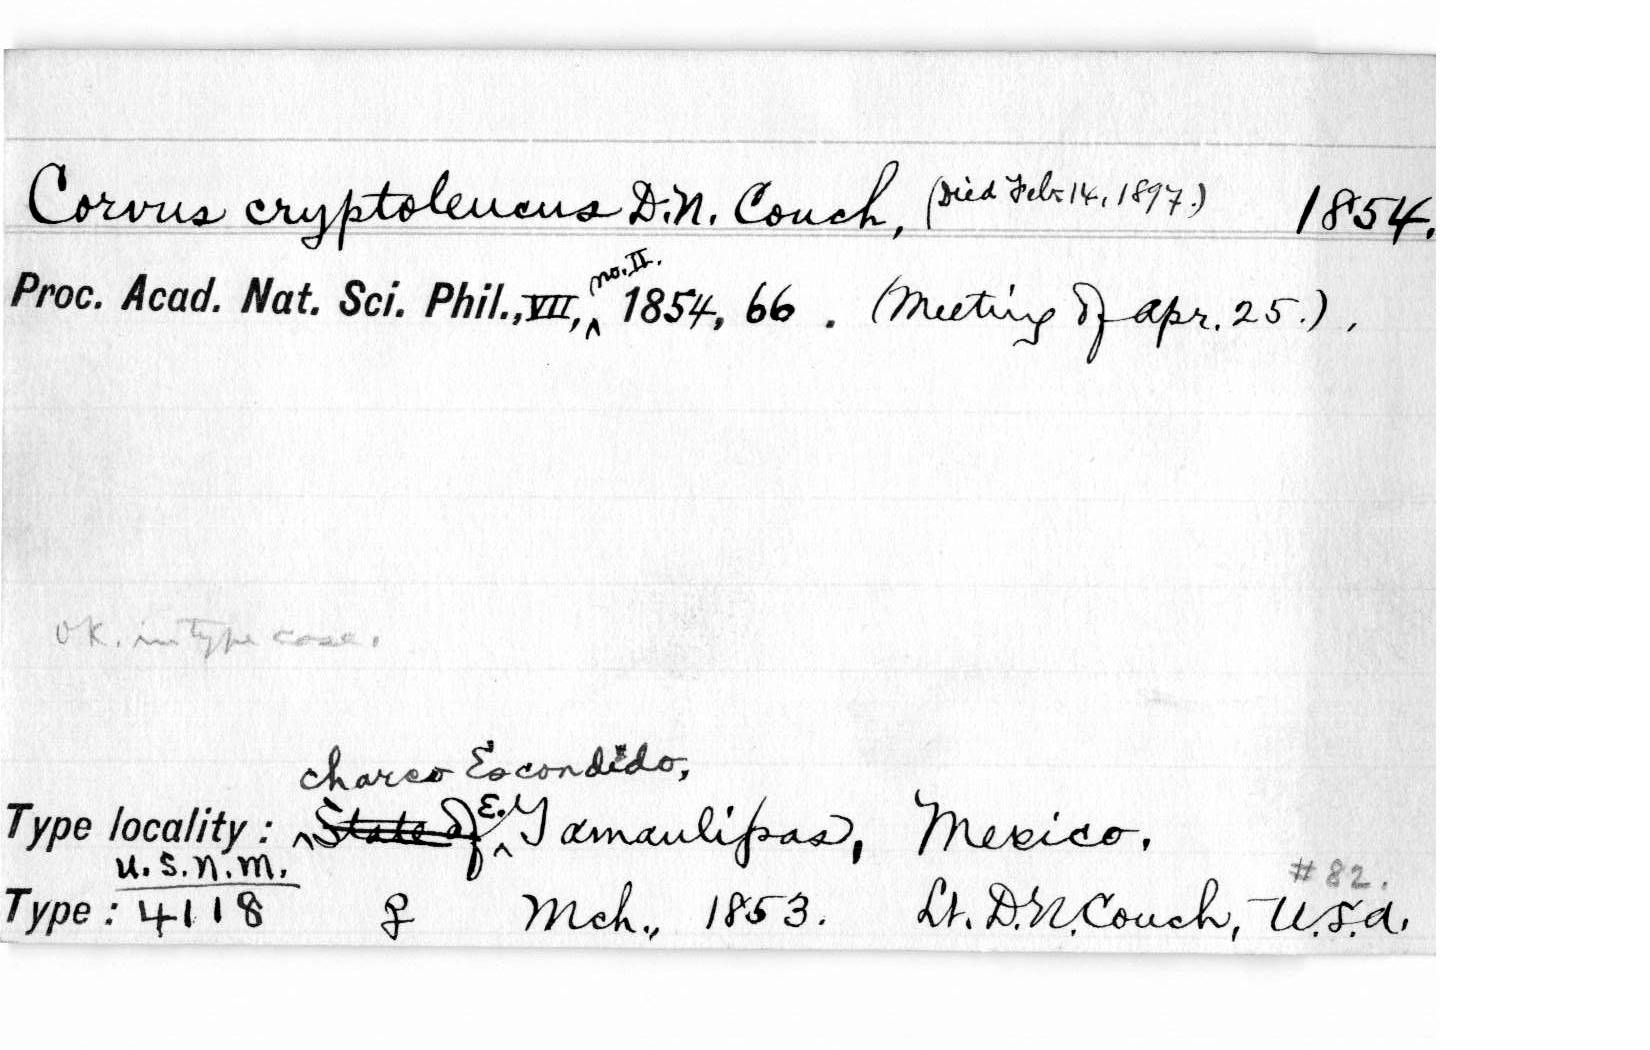 Corvus cryptoleucus D.N. Couch, (Died Feb. 14, 1897.) 1854.
no. II.
Proc. Acad. Nat. Sci. Phil., VII, ^ 1854, 66 . (Meeting of Apr. 25.) .
OK. in type case.
Charco Escondido,
Type locality : ^ State of E. ^ Tamaulipas, Mexico.
U.S.N.M. # 82.
Type : 4118 ♀ Mch., 1853. Lt. D.N. Couch, U.S.A.